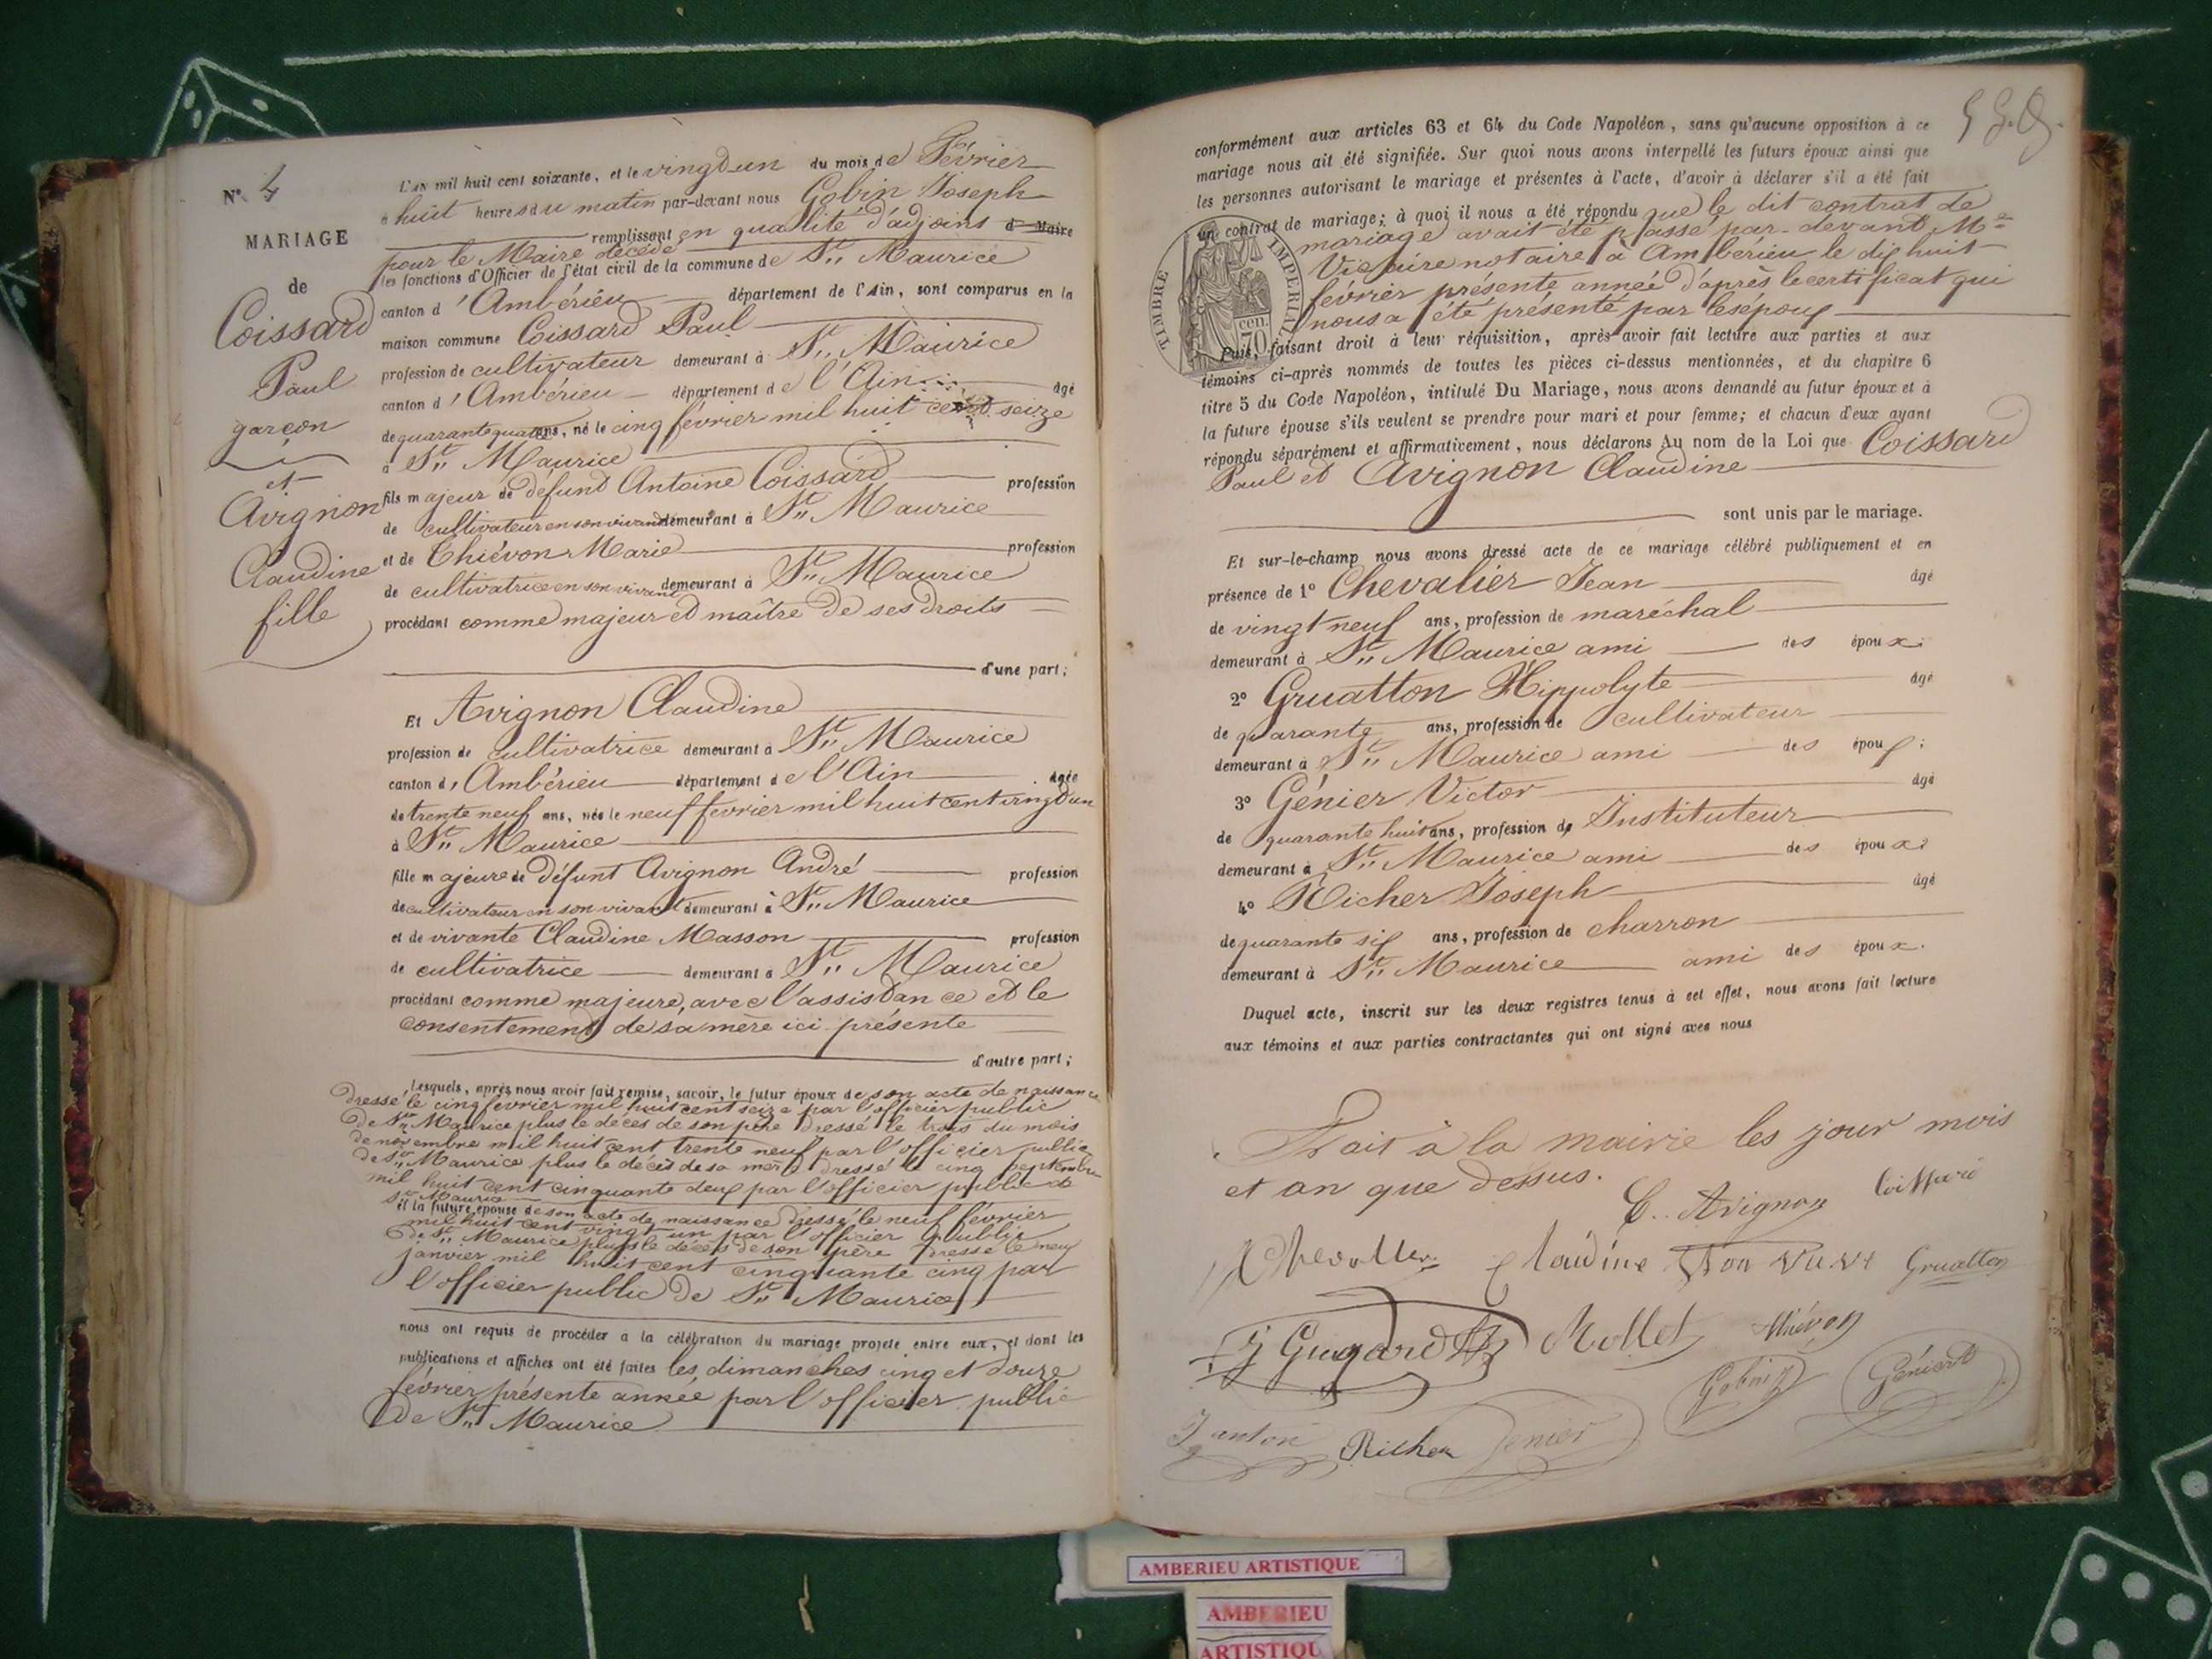 N° 4
MARIAGE
de
Coissard
Paul
garçon
et
Avignon
Claudine
fille
L'AN mil huit cent soixante, et le vingt un du mois de Février
à huit heures du matin par-devant nous Gobin Joseph
remplissant en qualité d'adjoint de Maire
pour le Maire décédé
les fonctions d'Officier de l'état civil de la commune de St. Maurice
canton d'Ambérieu département de l'Ain, sont comparus en la
maison commune Coissard Paul
profession de cultivateur demeurant à St. Maurice
canton d'Ambérieu département de l'Ain âgé
de quarante quatre ans, né le cinq février mil huit cent seize
à St. Maurice
fils majeur de défunt Antoine Coissard profession
de cultivateur en son vivant demeurant à St. Maurice
et de Thiévon Marie profession
de cultivatrice en son vivant demeurant à St. Maurice
procédant comme majeur et maître de ses droits
d'une part;
Et Avignon Claudine
profession de cultivatrice demeurant à St. Maurice
canton d'Ambérieu département de l'Ain âgée
de trente neuf ans, née le neuf février mil huit cent vingt un
à St. Maurice
fille majeure de défunt Avignon André profession
de cultivateur en son vivant demeurant à St. Maurice
et de vivante Claudine Masson profession
de cultivatrice demeurant à St. Maurice
procédant comme majeure, avec l'assistance et le
consentement de sa mère ici présente
d'autre part;
Lesquels, après nous avoir fait remise, savoir, le futur époux de son acte de naissance
dressé le cinq février mil huit cent seize par l'officier public
de St. Maurice plus le décès de son père dressé le trois du mois
de novembre mil huit cent trente neuf par l'officier public
de St. Maurice plus le décès de sa mère dressé le cinq septembre
mil huit cent cinquante deux par l'officier public de
St. Maurice
et la future épouse de son acte de naissance dressé le neuf février
mil huit cent vingt un par l'officier public
de St. Maurice plus le décès de son père dressé le neuf
janvier mil huit cent cinquante cinq par
l'officier public de St. Maurice
nous ont requis de procéder à la célébration du mariage projeté entre eux, et dont les
publications et affiches ont été faites les dimanches cinq et douze
février présente année par l'officier public
de St. Maurice
conformément aux articles 63 et 64 du Code Napoléon, sans qu'aucune opposition à ce
mariage nous ait été signifiée. Sur quoi nous avons interpellé les futurs époux ainsi que
les personnes autorisant le mariage et présentes à l'acte, d'avoir à déclarer s'il a été fait
un contrat de mariage; à quoi il nous a été répondu que le dit contrat de
mariage avait été passé par-devant Me
notaire à Ambérieu le dix huit
février présente année d'après le certificat qui
nous a été présenté par les époux
TIMBRE IMPERIAL
70 cen.
Puis, faisant droit à leur réquisition, après avoir fait lecture aux parties et aux
témoins ci-après nommés de toutes les pièces ci-dessus mentionnées, et du chapitre 6
titre 5 du Code Napoléon, intitulé Du Mariage, nous avons demandé au futur époux et à
la future épouse s'ils veulent se prendre pour mari et pour femme; et chacun d'eux ayant
répondu séparément et affirmativement, nous déclarons Au nom de la Loi que Coissard
Paul et Avignon Claudine
sont unis par le mariage.
Et sur-le-champ nous avons dressé acte de ce mariage célébré publiquement et en
présence de 1° Chevalier Jean âgé
de vingt neuf ans, profession de maréchal
demeurant à St. Maurice ami des époux;
2° Gruatton Hippolyte âgé
de quarante ans, profession de cultivateur
demeurant à St. Maurice ami des époux;
3° Génier Victor âgé
de quarante huit ans, profession de Instituteur
demeurant à St. Maurice ami des époux;
4° Richer Joseph âgé
de quarante six ans, profession de charron
demeurant à St. Maurice ami des époux.
Duquel acte, inscrit sur les deux registres tenus à cet effet, nous avons fait lecture
aux témoins et aux parties contractantes qui ont signé avec nous
Fait à la mairie les jour mois
et an que dessus.
C. Avignon Coissard
Chevallier Claudine Gruatton
Mollet Thiévon
Gobin J Génier
Janton Richer Genier
AMBERIEU ARTISTIQUE
AMBERIEU
ARTISTIQU